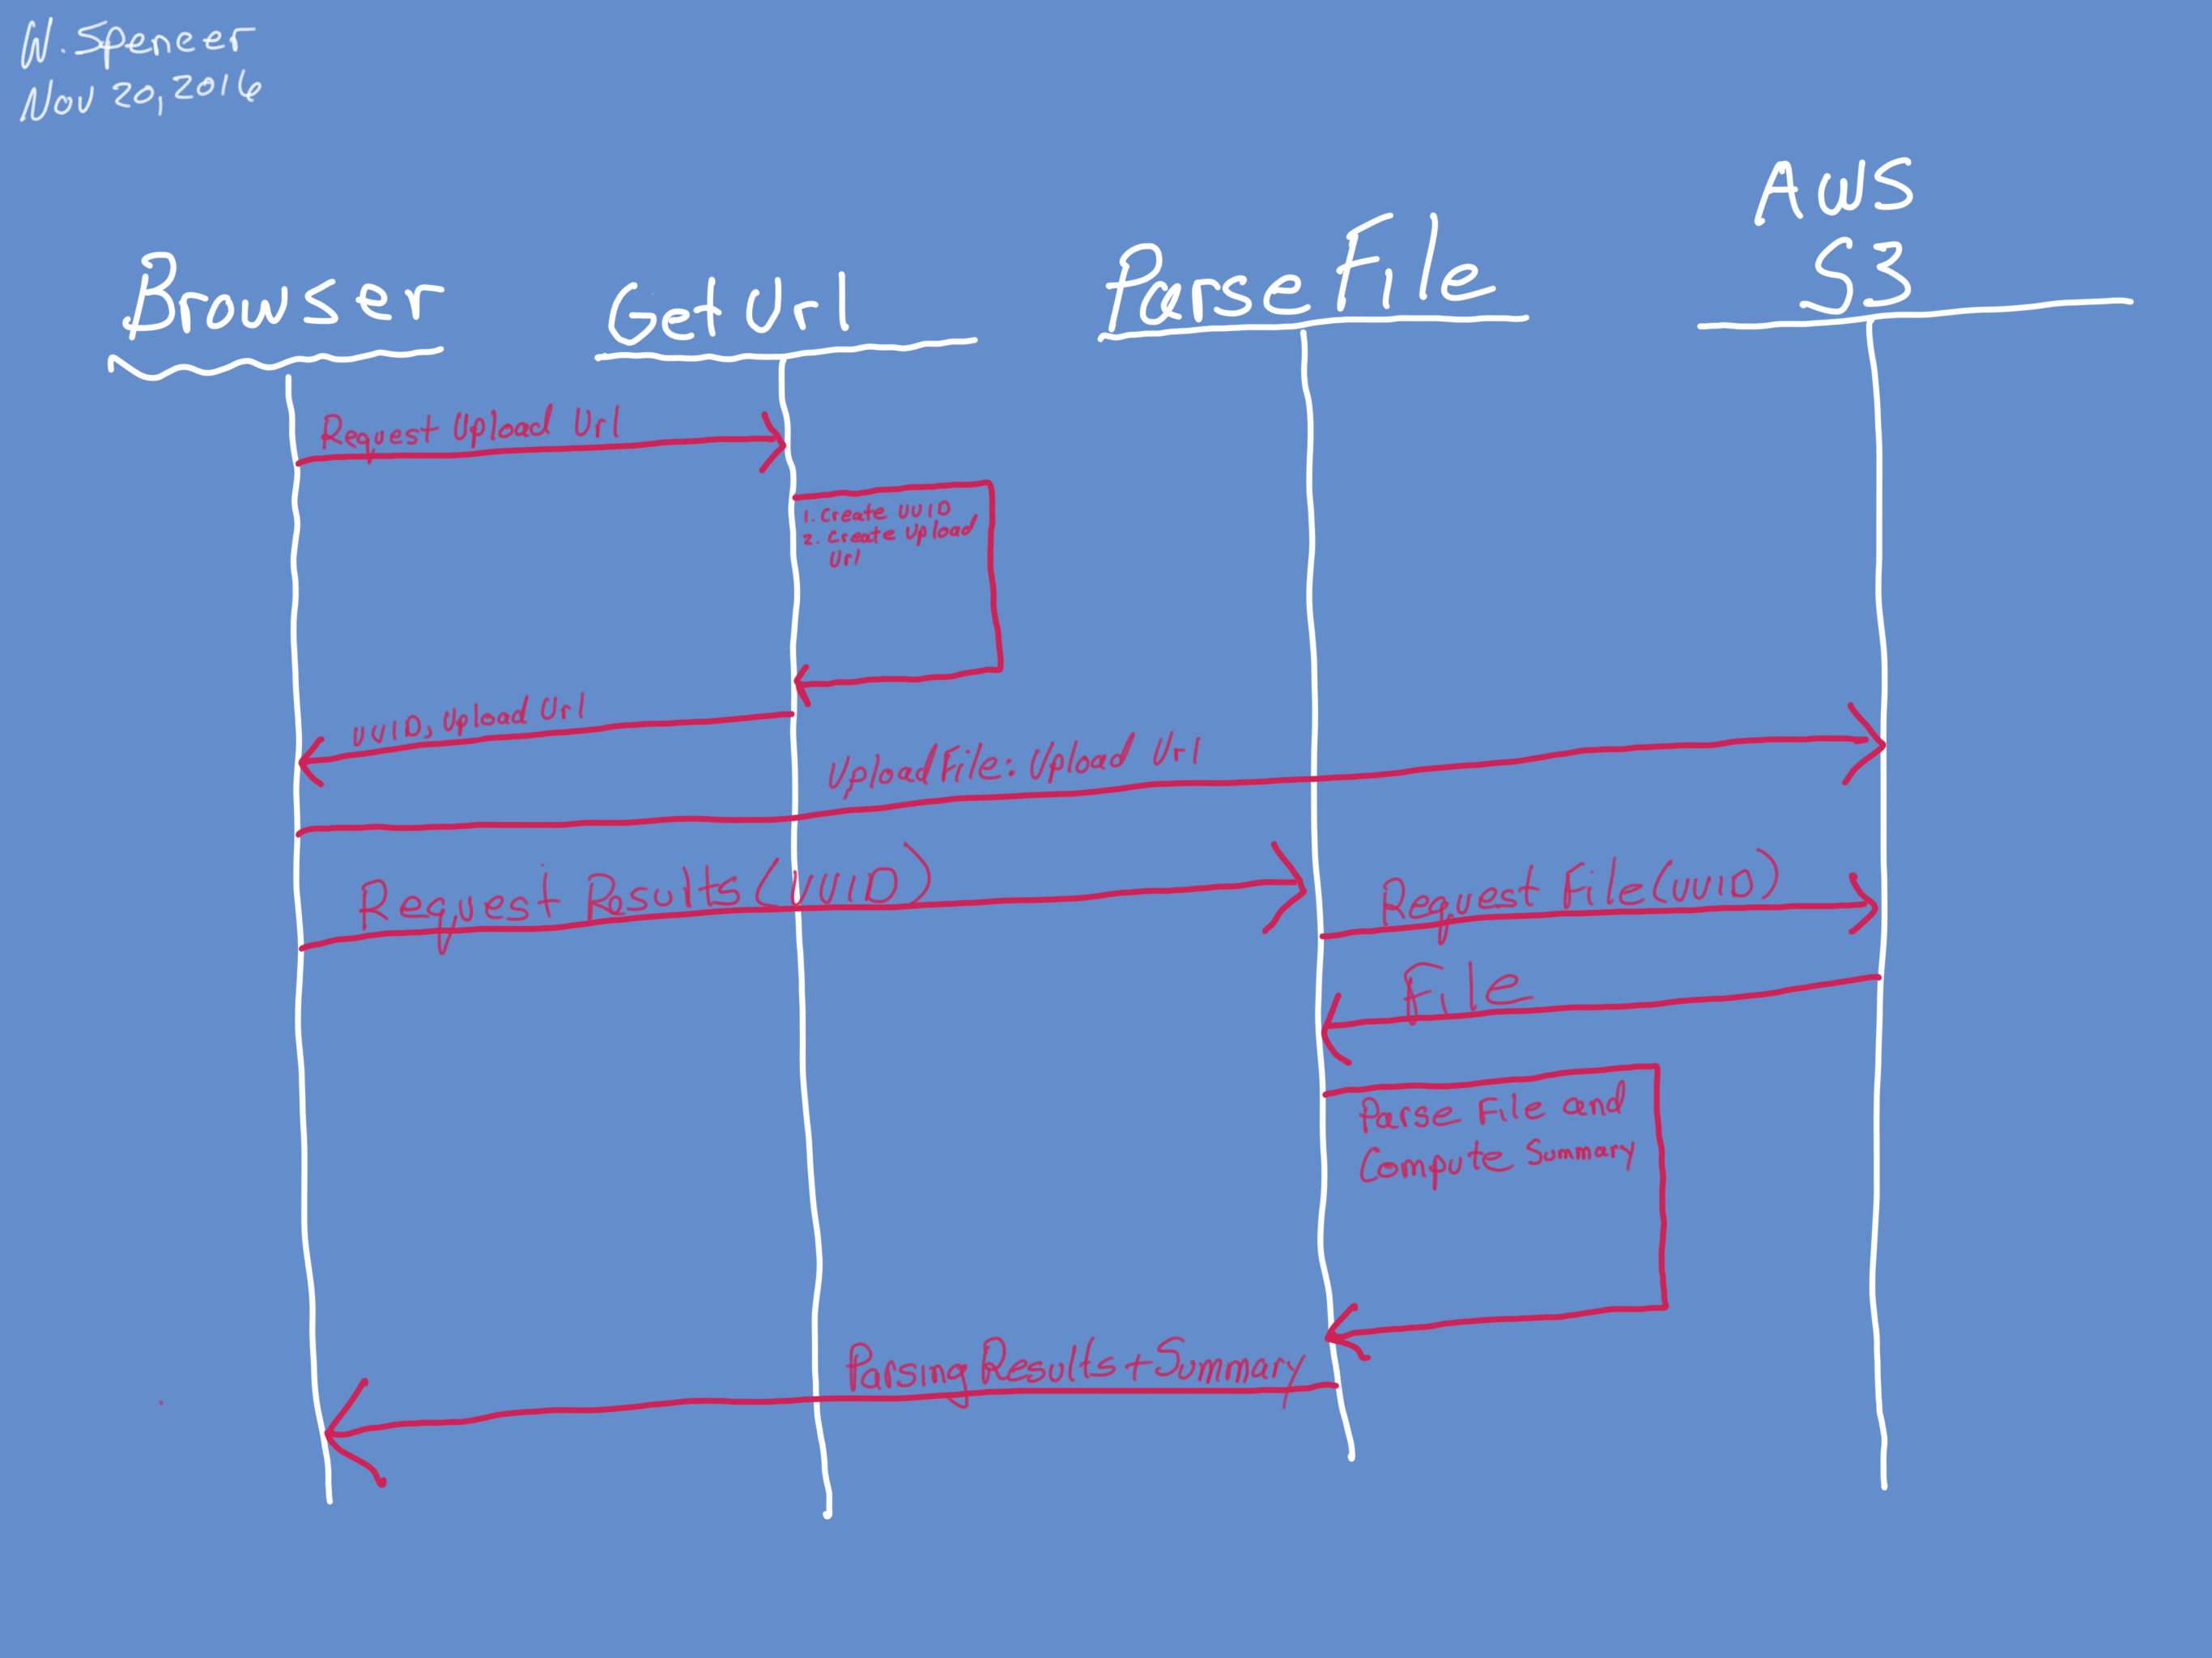 W. Spencer
Nov 20, 2016
Browser
GetUrl
ParseFile
AWS
S3
Request Upload Url
1. Create UUID
2. Create Upload
Url
UUID, Upload Url
UploadFile: Upload Url
Request Results(UUID)
Request File(UUID)
File
Parse File and
Compute Summary
Parsing Results + Summary